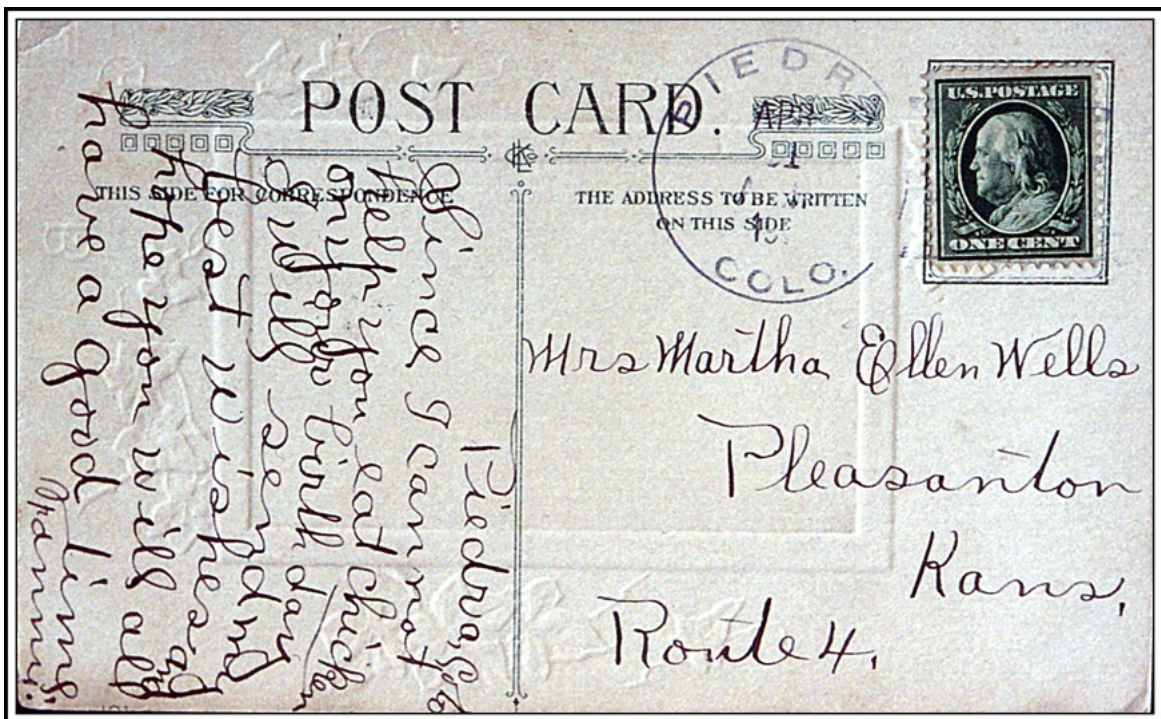 POST CARD.
THIS SIDE FOR CORRESPONDENCE
THE ADDRESS TO BE WRITTEN
ON THIS SIDE
PIEDR
APR
COLO.
U.S. POSTAGE
ONE CENT
Piedra, Colo
Since I cannot
help you eat chicken
on your birthday
I will send my
best wishes and
hope you will all
have a good time,
Mrs Martha Ellen Wells
Pleasanton
Kans,
Route 4.